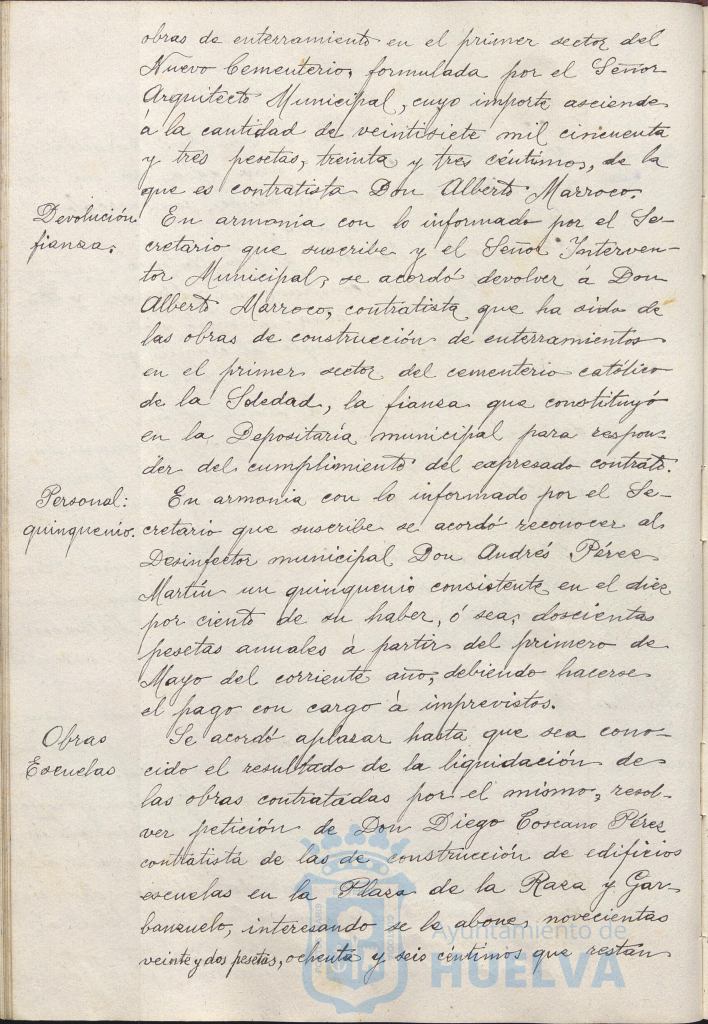 obras de enterramiento en el primer sector del
Nuevo Cementerio, formulada por el Señor
Arquitecto Municipal, cuyo importe asciende
á la cantidad de veintisiete mil cincuenta
y tres pesetas, treinta y tres céntimos, de la
que es contratista Don Alberto Marroco.
Devolución
fianza.
En armonia con lo informado por el Se-
cretario que suscribe y el Señor Interven-
tor Municipal, se acordó devolver á Don
Alberto Marroco, contratista que ha sido de
las obras de construcción de enterramientos
en el primer sector del cementerio católico
de la Soledad, la fianza que constituyó
en la Depositaría municipal para respon-
der del cumplimiento del expresado contrato.
Personal:
quinquenio.
En armonia con lo informado por el Se-
cretario que suscribe se acordó reconocer al
Desinfector municipal Don Andrés Pérez
Martín un quinquenio consistente en el diez
por ciento de su haber, ó sea, doscientas
pesetas anuales á partir del primero de
Mayo del corriente año, debiendo hacerse
el pago con cargo á imprevistos.
Obras
Escuelas
Se acordó aplazar hasta que sea cono-
cido el resultado de la liquidación de
las obras contratadas por el mismo, resol-
ver petición de Don Diego Toscano Pérez
contratista de las de construcción de edificios
escuelas en la Plaza de la Raza y Gar-
banzuelo, interesando se le abone, novecientas
veinte y dos pesetas, ochenta y seis céntimos que restan
Ayuntamiento de
HUELVA